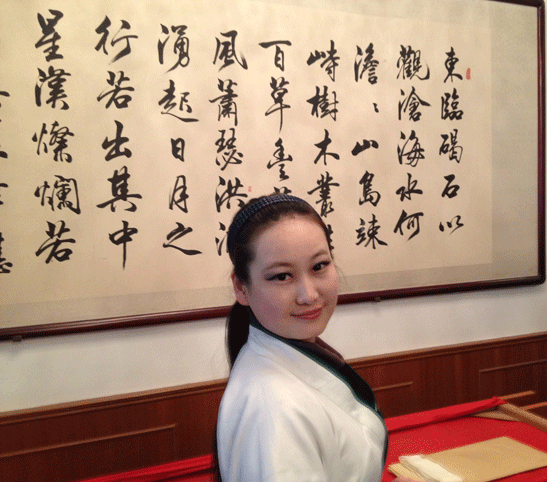 東臨碣石以
觀滄海水何
澹〻山島竦
峙樹木叢
百草豐
風蕭瑟洪
湧起日月之
行若出其中
星漢燦爛若